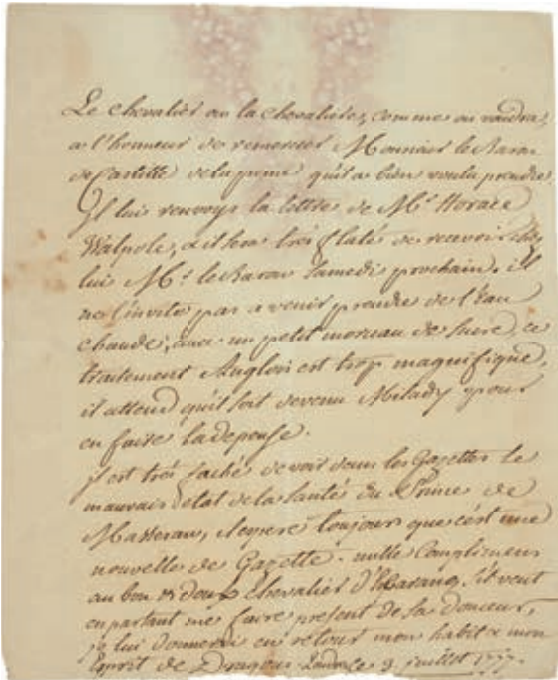 Le chevalier ou la chevaliere, comme on voudra,
a l'honneur de remercier Monsieur le Baron
de Castille dela peine quil a bien voulu prendre
Il lui renvoye la lettre de Mr. Horace
Walpole, & il sera très flaté de recevoir chez
lui Mr. le Baron Samedi prochain. il
ne l'invite pas a venir prendre de l'Eau
chaude, avec un petit morceau de sucre, ce
traitement Anglois est trop magnifique,
il attend quil soit devenu Milady pour
en faire la depense.
il est très faché de voir dans les Gazettes le
mauvais etat de la Santé du Prince de
Masseran, il espere toujours que c'est une
nouvelle de Gazette. mille Complimens
au bon & doux Chevalier d'Harang, s'il veut
en partant me faire present de sa douceur,
je lui donnerai en retour mon habit & mon
Esprit de Dragons. Londres ce 9. juillet 1777.